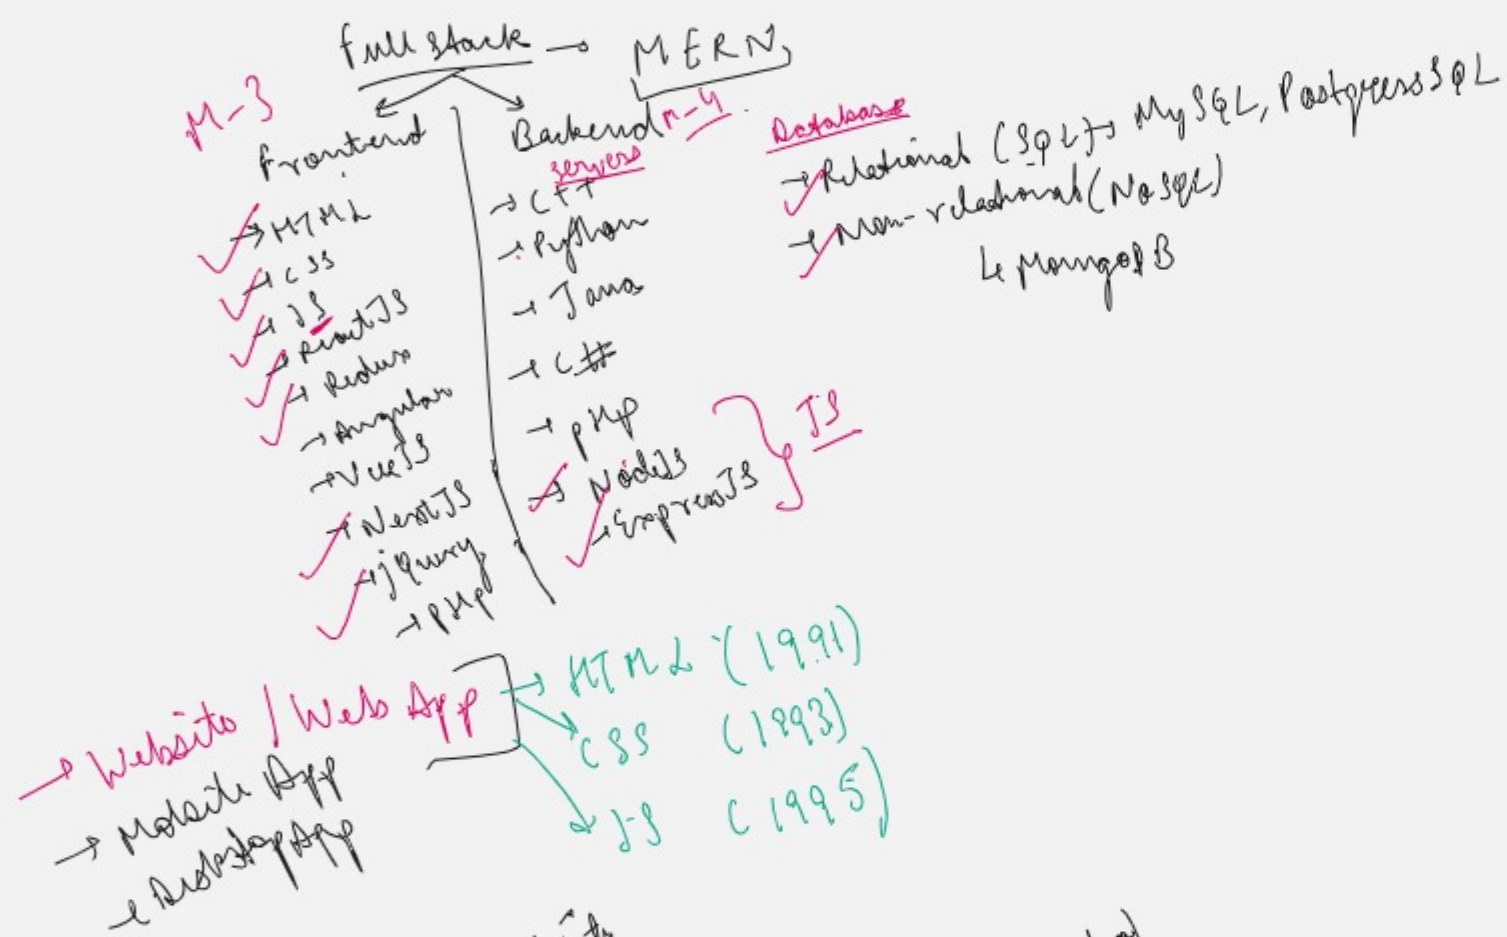 Full stack → MERN
M-3
Frontend
→ HTML
→ CSS
→ JS
→ ReactJS
→ Redux
→ Angular
→ VueJS
→ NextJS
→ jQuery
→ PHP
Backend M-4
servers
→ C++
→ Python
→ Java
→ C#
→ PHP
→ NodeJS
→ ExpressJS
JS
Database
→ Relational (SQL) → MySQL, PostgressSQL
→ Non-relational (NoSQL)
↳ MongoDB
→ Website / Web App
→ Mobile App
→ Desktop App
→ HTML (1991)
CSS (1993)
JS (1995)